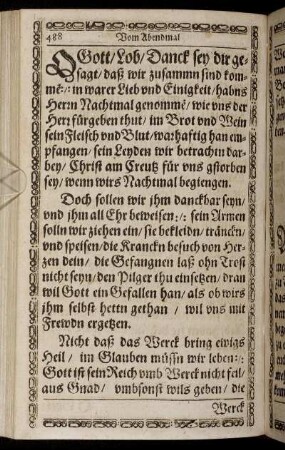 488 Vom Abendmal
O Gott/ Lob/ Danck sey dir ge-
sagt/ daß wir zusammn sind kom-
mē/: in warer Lieb vnd Einigkeit/ habns
Herrn Nachtmal genommē/ wie vns der
Herꝛ fürgeben thut/ im Brot vnd Wein
sein Fleisch vnd Blut/ warhaftig han em-
pfangen/ sein Leyden wir betrachtn dar-
bey/ Christ am Creutz für vns gstorben
sey/ wenn wirs Nachtmal begiengen.
Doch sollen wir jhm danckbar seyn/
vnd jhm all Ehr beweisen:/: sein Armen
solln wir ziehen ein/ sie bekleidn/ tränckn/
vnd speisen/ die Kranckn besuch von Her-
zen dein/ die Gefangnen laß ohn Trost
nicht seyn/ den Pilger thu einsetzen/ dran
wil Gott ein Gefallen han/ als ob wirs
jhm selbst hettn gethan/ wil vns mit
Frewdn ergetzen.
Nicht daß das Werck bring ewigs
Heil/ im Glauben müssn wir leben:/:
Gott ist sein Reich vmb Werck nicht feil/
aus Gnad/ vmbsonst wils geben/ die
Werck